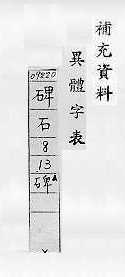 補充資料
異體字表
04220
碑
石
8
13
碑